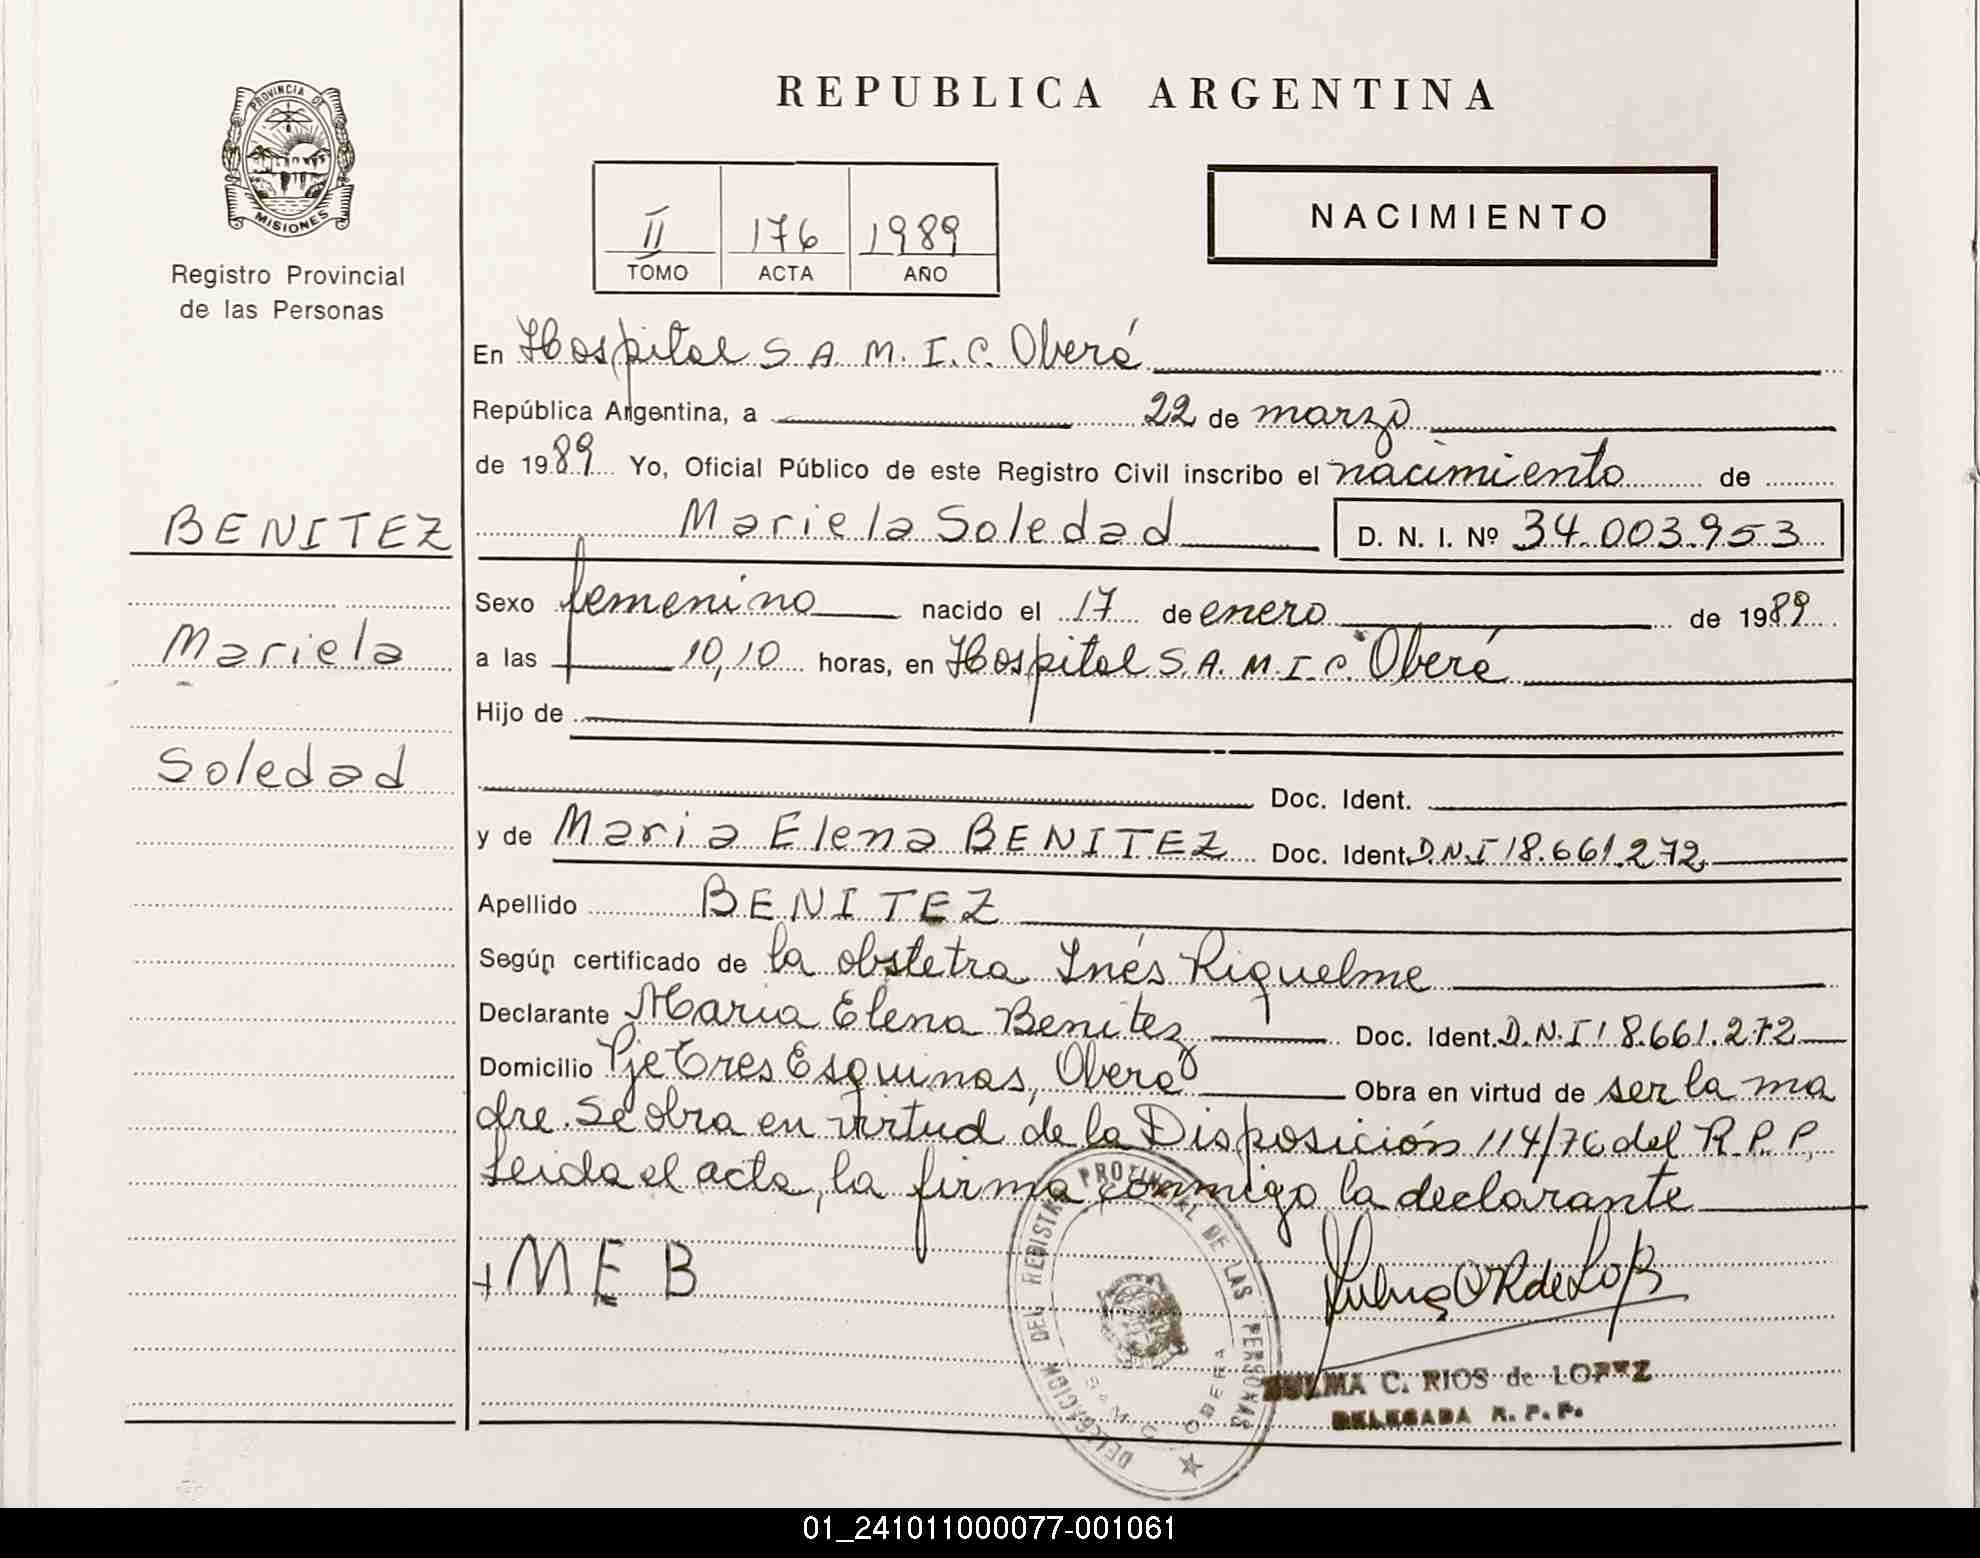 REPUBLICA ARGENTINA
PROVINCIA DE
MISIONES
Registro Provincial
de las Personas
II 176 1989
TOMO ACTA AÑO
NACIMIENTO
En Hospital S.A.M.I.C. Oberá
República Argentina, a 22 de marzo
de 1989 Yo, Oficial Público de este Registro Civil inscribo el nacimiento de
BENITEZ
Mariela
Soledad
Mariela Soledad D. N. I. Nº 34.003.953
Sexo femenino nacido el 17 de enero de 1989
a las 10,10 horas, en Hospital S.A.M.I.C. Oberá
Hijo de
Doc. Ident.
y de Maria Elena BENITEZ Doc. Ident. D.N.I 18.661.272
Apellido BENITEZ
Según certificado de la obstetra Inés Riquelme
Declarante Maria Elena Benitez Doc. Ident. D.N.I 18.661.272
Domicilio Pje Tres Esquinas, Oberá Obra en virtud de ser la ma
dre. Se obra en virtud de la Disposición 114/76 del R.P.P.
Leida el acta, la firma conmigo la declarante
+ M E B
DELEGACION DEL REGISTRO PROVINCIAL DE LAS PERSONAS
OBERA
ZULMA C. RIOS de LOPEZ
DELEGADA R. P. P.
01_241011000077-001061